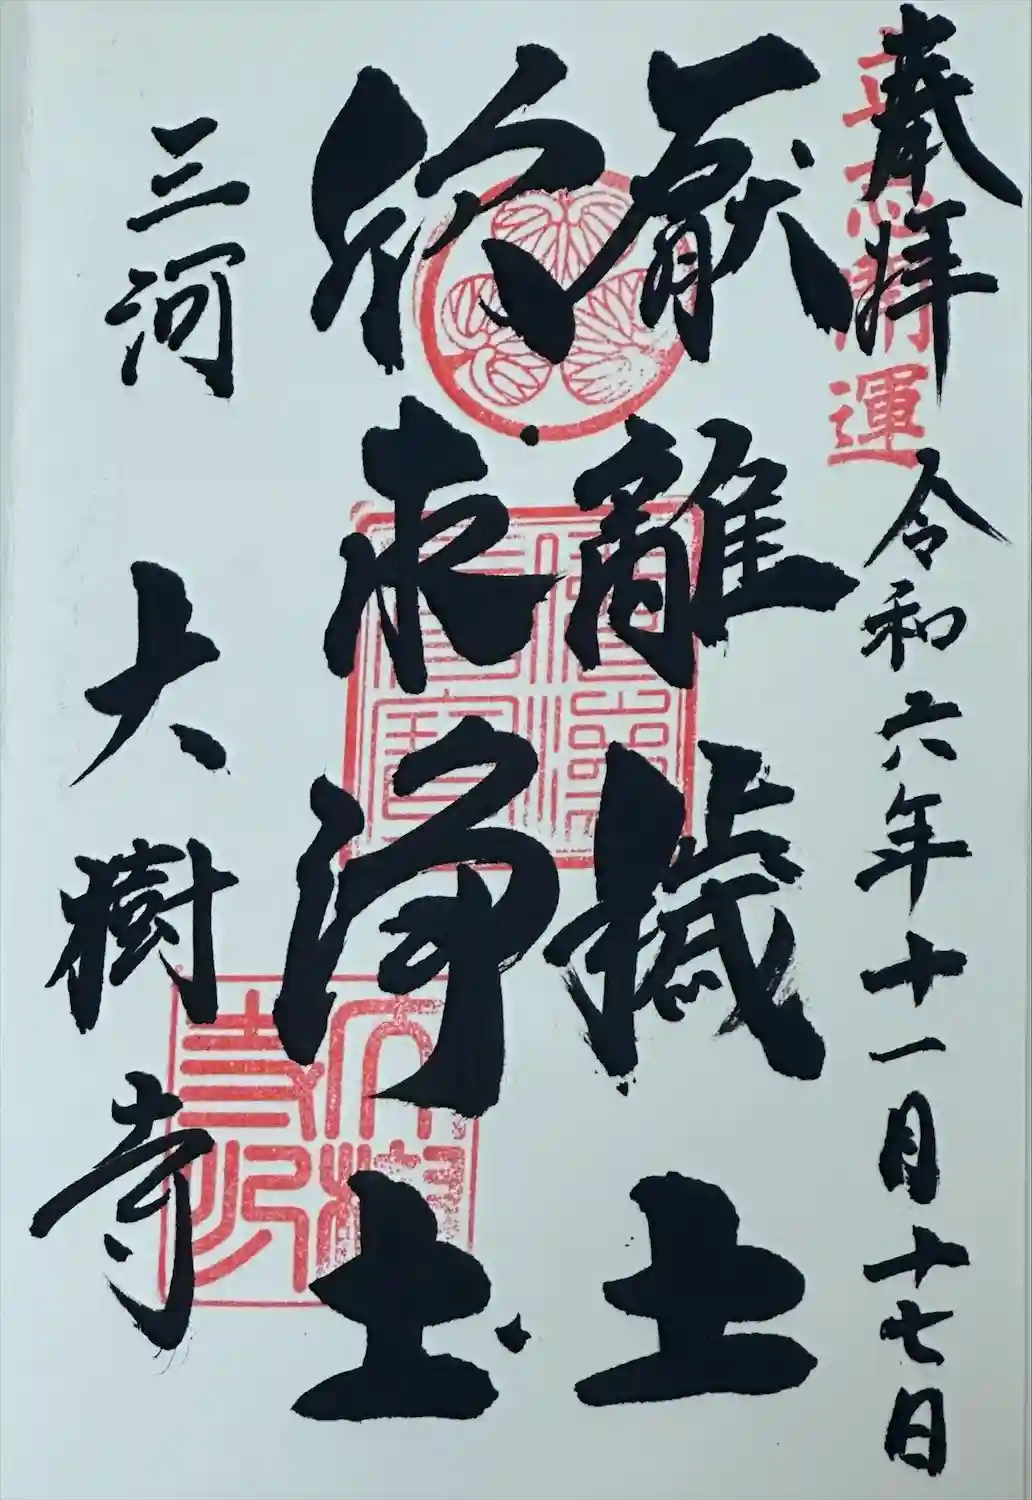 奉拝
開運
令和六年十一月十七日
厭離穢土
欣求浄土
三河
大樹寺